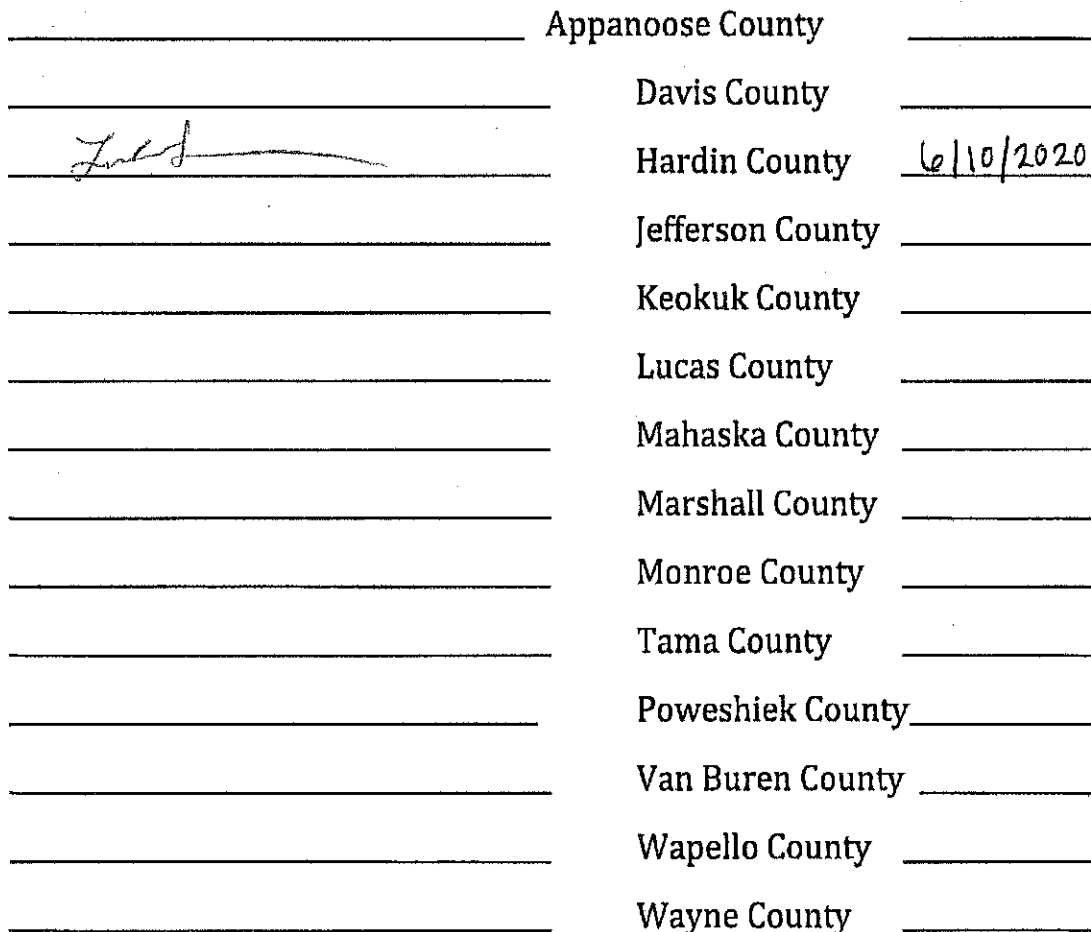 Appanoose County
Davis County
Hardin County 6/10/2020
Jefferson County
Keokuk County
Lucas County
Mahaska County
Marshall County
Monroe County
Tama County
Poweshiek County
Van Buren County
Wapello County
Wayne County